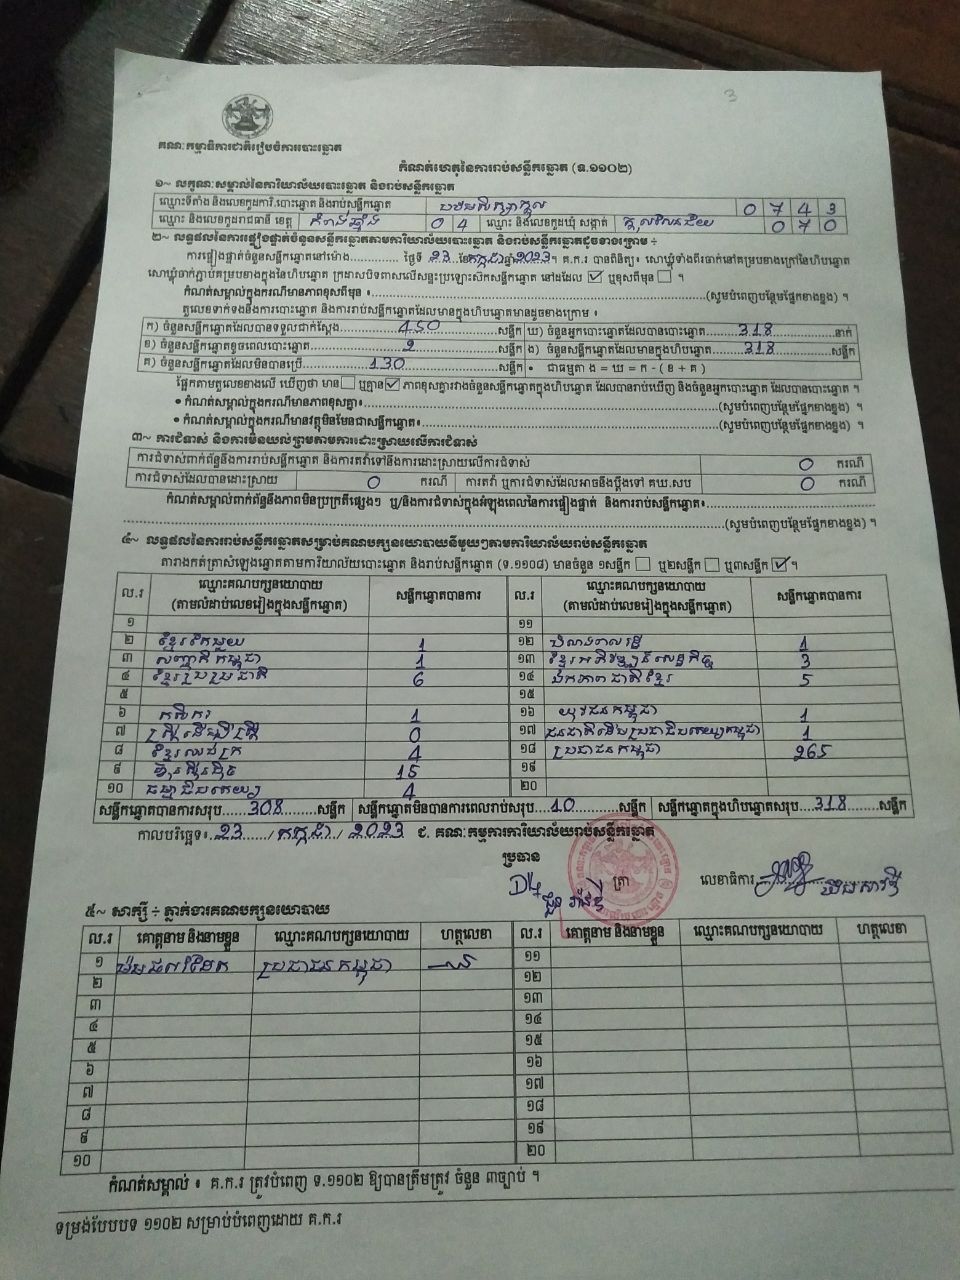 3
គណៈកម្មាធិការជាតិរៀបចំការបោះឆ្នោត
កំណត់ហេតុនៃការរាប់សន្លឹកឆ្នោត (ទ.១១០២)
១~ លក្ខណៈសម្គាល់នៃការិយាល័យបោះឆ្នោត និងរាប់សន្លឹកឆ្នោត
ឈ្មោះទីតាំង និងលេខកូដការិ.បោះឆ្នោត និងរាប់សន្លឹកឆ្នោត 0 7 4 3
ឈ្មោះ និងលេខកូដរាជធានី ខេត្ត កំពង់ឆ្នាំង 0 4 ឈ្មោះ និងលេខកូដឃុំ សង្កាត់ 070
២~ លទ្ធផលនៃការផ្ទៀងផ្ទាត់ចំនួនសន្លឹកឆ្នោតតាមការិយាល័យបោះឆ្នោត និងរាប់សន្លឹកឆ្នោតដូចខាងក្រោម ÷
ការផ្ទៀងផ្ទាត់ចំនួនសន្លឹកឆ្នោតនៅម៉ោង............ ថ្ងៃទី 23 ខែ កក្កដា ឆ្នាំ 2023។ គ.ក.រ បានពិនិត្យ៖ សោឃ្មុំទាំងពីរចាក់នៅគម្របខាងក្រៅនៃហិបឆ្នោត
សោឃ្មុំចាក់ភ្ជាប់គម្របខាងក្នុងនៃហិបឆ្នោត ក្រដាសបិទពាសលើសន្ទះប្រឡោះសិកសន្លឹកឆ្នោត នៅដដែល ☑ ឬខុសពីមុន ☐ ។
កំណត់សម្គាល់ក្នុងករណីមានភាពខុសពីមុន ៖............(សូមបំពេញបន្ថែមផ្នែកខាងខ្នង) ។
តួលេខទាក់ទងនឹងការបោះឆ្នោត និងការរាប់សន្លឹកឆ្នោតដែលមានក្នុងហិបឆ្នោតមានដូចខាងក្រោម ៖
ក) ចំនួនសន្លឹកឆ្នោតដែលបានទទួលជាក់ស្តែង 450 សន្លឹក ឃ) ចំនួនអ្នកបោះឆ្នោតដែលបានបោះឆ្នោត 318 នាក់
ខ) ចំនួនសន្លឹកឆ្នោតខូចពេលបោះឆ្នោត 2 សន្លឹក ង) ចំនួនសន្លឹកឆ្នោតដែលមានក្នុងហិបឆ្នោត 318 សន្លឹក
គ) ចំនួនសន្លឹកឆ្នោតដែលមិនបានប្រើ 130 សន្លឹក • ជាធម្មតា ង = ឃ = ក - ( ខ + គ )
ផ្អែកតាមតួលេខខាងលើ ឃើញថា មាន ☐ ឬគ្មាន ☑ ភាពខុសគ្នារវាងចំនួនសន្លឹកឆ្នោតក្នុងហិបឆ្នោត ដែលបានរាប់ឃើញ និងចំនួនអ្នកបោះឆ្នោត ដែលបានបោះឆ្នោត ។
• កំណត់សម្គាល់ក្នុងករណីមានភាពខុសគ្នា៖............(សូមបំពេញបន្ថែមផ្នែកខាងខ្នង) ។
• កំណត់សម្គាល់ក្នុងករណីមានវត្ថុមិនមែនជាសន្លឹកឆ្នោត៖............(សូមបំពេញបន្ថែមផ្នែកខាងខ្នង) ។
៣~ ការជំទាស់ និងការមិនយល់ព្រមតាមការដោះស្រាយលើការជំទាស់
ការជំទាស់ពាក់ព័ន្ធនឹងការរាប់សន្លឹកឆ្នោត និងការតវ៉ាទៅនឹងការដោះស្រាយលើការជំទាស់ 0 ករណី
ការជំទាស់ដែលបានដោះស្រាយ 0 ករណី ការតវ៉ា ឬការជំទាស់ដែលអាចនឹងប្តឹងទៅ គឃ.សប 0 ករណី
កំណត់សម្គាល់ពាក់ព័ន្ធនឹងភាពមិនប្រក្រតីផ្សេងៗ ឬ/និងការជំទាស់ក្នុងអំឡុងពេលនៃការផ្ទៀងផ្ទាត់ និងការរាប់សន្លឹកឆ្នោត៖............
............(សូមបំពេញបន្ថែមផ្នែកខាងខ្នង) ។
៤~ លទ្ធផលនៃការរាប់សន្លឹកឆ្នោតសម្រាប់គណបក្សនយោបាយនីមួយៗតាមការិយាល័យរាប់សន្លឹកឆ្នោត
តារាងកត់ត្រាសំឡេងឆ្នោតតាមការិយាល័យបោះឆ្នោត និងរាប់សន្លឹកឆ្នោត (ទ.១១០៨) មានចំនួន ១សន្លឹក ☐ ឬ២សន្លឹក ☐ ឬ៣សន្លឹក ☑ ។
ល.រ ឈ្មោះគណបក្សនយោបាយ (តាមលំដាប់លេខរៀងក្នុងសន្លឹកឆ្នោត) សន្លឹកឆ្នោតបានការ ល.រ ឈ្មោះគណបក្សនយោបាយ (តាមលំដាប់លេខរៀងក្នុងសន្លឹកឆ្នោត) សន្លឹកឆ្នោតបានការ
១ ១១
២ ខ្មែរតែមួយ 1 ១២ 1
៣ សញ្ជាតិកម្ពុជា 1 ១៣ ខ្មែរអភិវឌ្ឍន៍សេដ្ឋកិច្ច 3
៤ ខ្មែររួបរួមជាតិ 6 ១៤ ឯកភាពជាតិខ្មែរ 5
៥ ១៥
៦ កសិករ 1 ១៦ យុវជនកម្ពុជា 1
៧ ស្ត្រីដើម្បីស្ត្រី 0 ១៧ ជនជាតិដើមប្រជាធិបតេយ្យកម្ពុជា 1
៨ ខ្មែរឈប់ក្រ 4 ១៨ ប្រជាជនកម្ពុជា 265
៩ ហ៊្វុនស៊ិនប៉ិច 15 ១៩
១០ ធម្មាធិបតេយ្យ 4 ២០
សន្លឹកឆ្នោតបានការសរុប 308 សន្លឹក សន្លឹកឆ្នោតមិនបានការពេលរាប់សរុប 10 សន្លឹក សន្លឹកឆ្នោតក្នុងហិបឆ្នោតសរុប 318 សន្លឹក
កាលបរិច្ឆេទ៖ 23 / កក្កដា / 2023 ជ. គណៈកម្មការការិយាល័យរាប់សន្លឹកឆ្នោត
ប្រធាន
ត្រា លេខាធិការ
៥~ សាក្សី ÷ ភ្នាក់ងារគណបក្សនយោបាយ
ល.រ គោត្តនាម និងនាមខ្លួន ឈ្មោះគណបក្សនយោបាយ ហត្ថលេខា ល.រ គោត្តនាម និងនាមខ្លួន ឈ្មោះគណបក្សនយោបាយ ហត្ថលេខា
១ ប្រជាជនកម្ពុជា ១១
២ ១២
៣ ១៣
៤ ១៤
៥ ១៥
៦ ១៦
៧ ១៧
៨ ១៨
៩ ១៩
១០ ២០
កំណត់សម្គាល់ ៖ គ.ក.រ ត្រូវបំពេញ ទ.១១០២ ឱ្យបានត្រឹមត្រូវ ចំនួន ៣ច្បាប់ ។
ទម្រង់បែបបទ ១១០២ សម្រាប់បំពេញដោយ គ.ក.រ